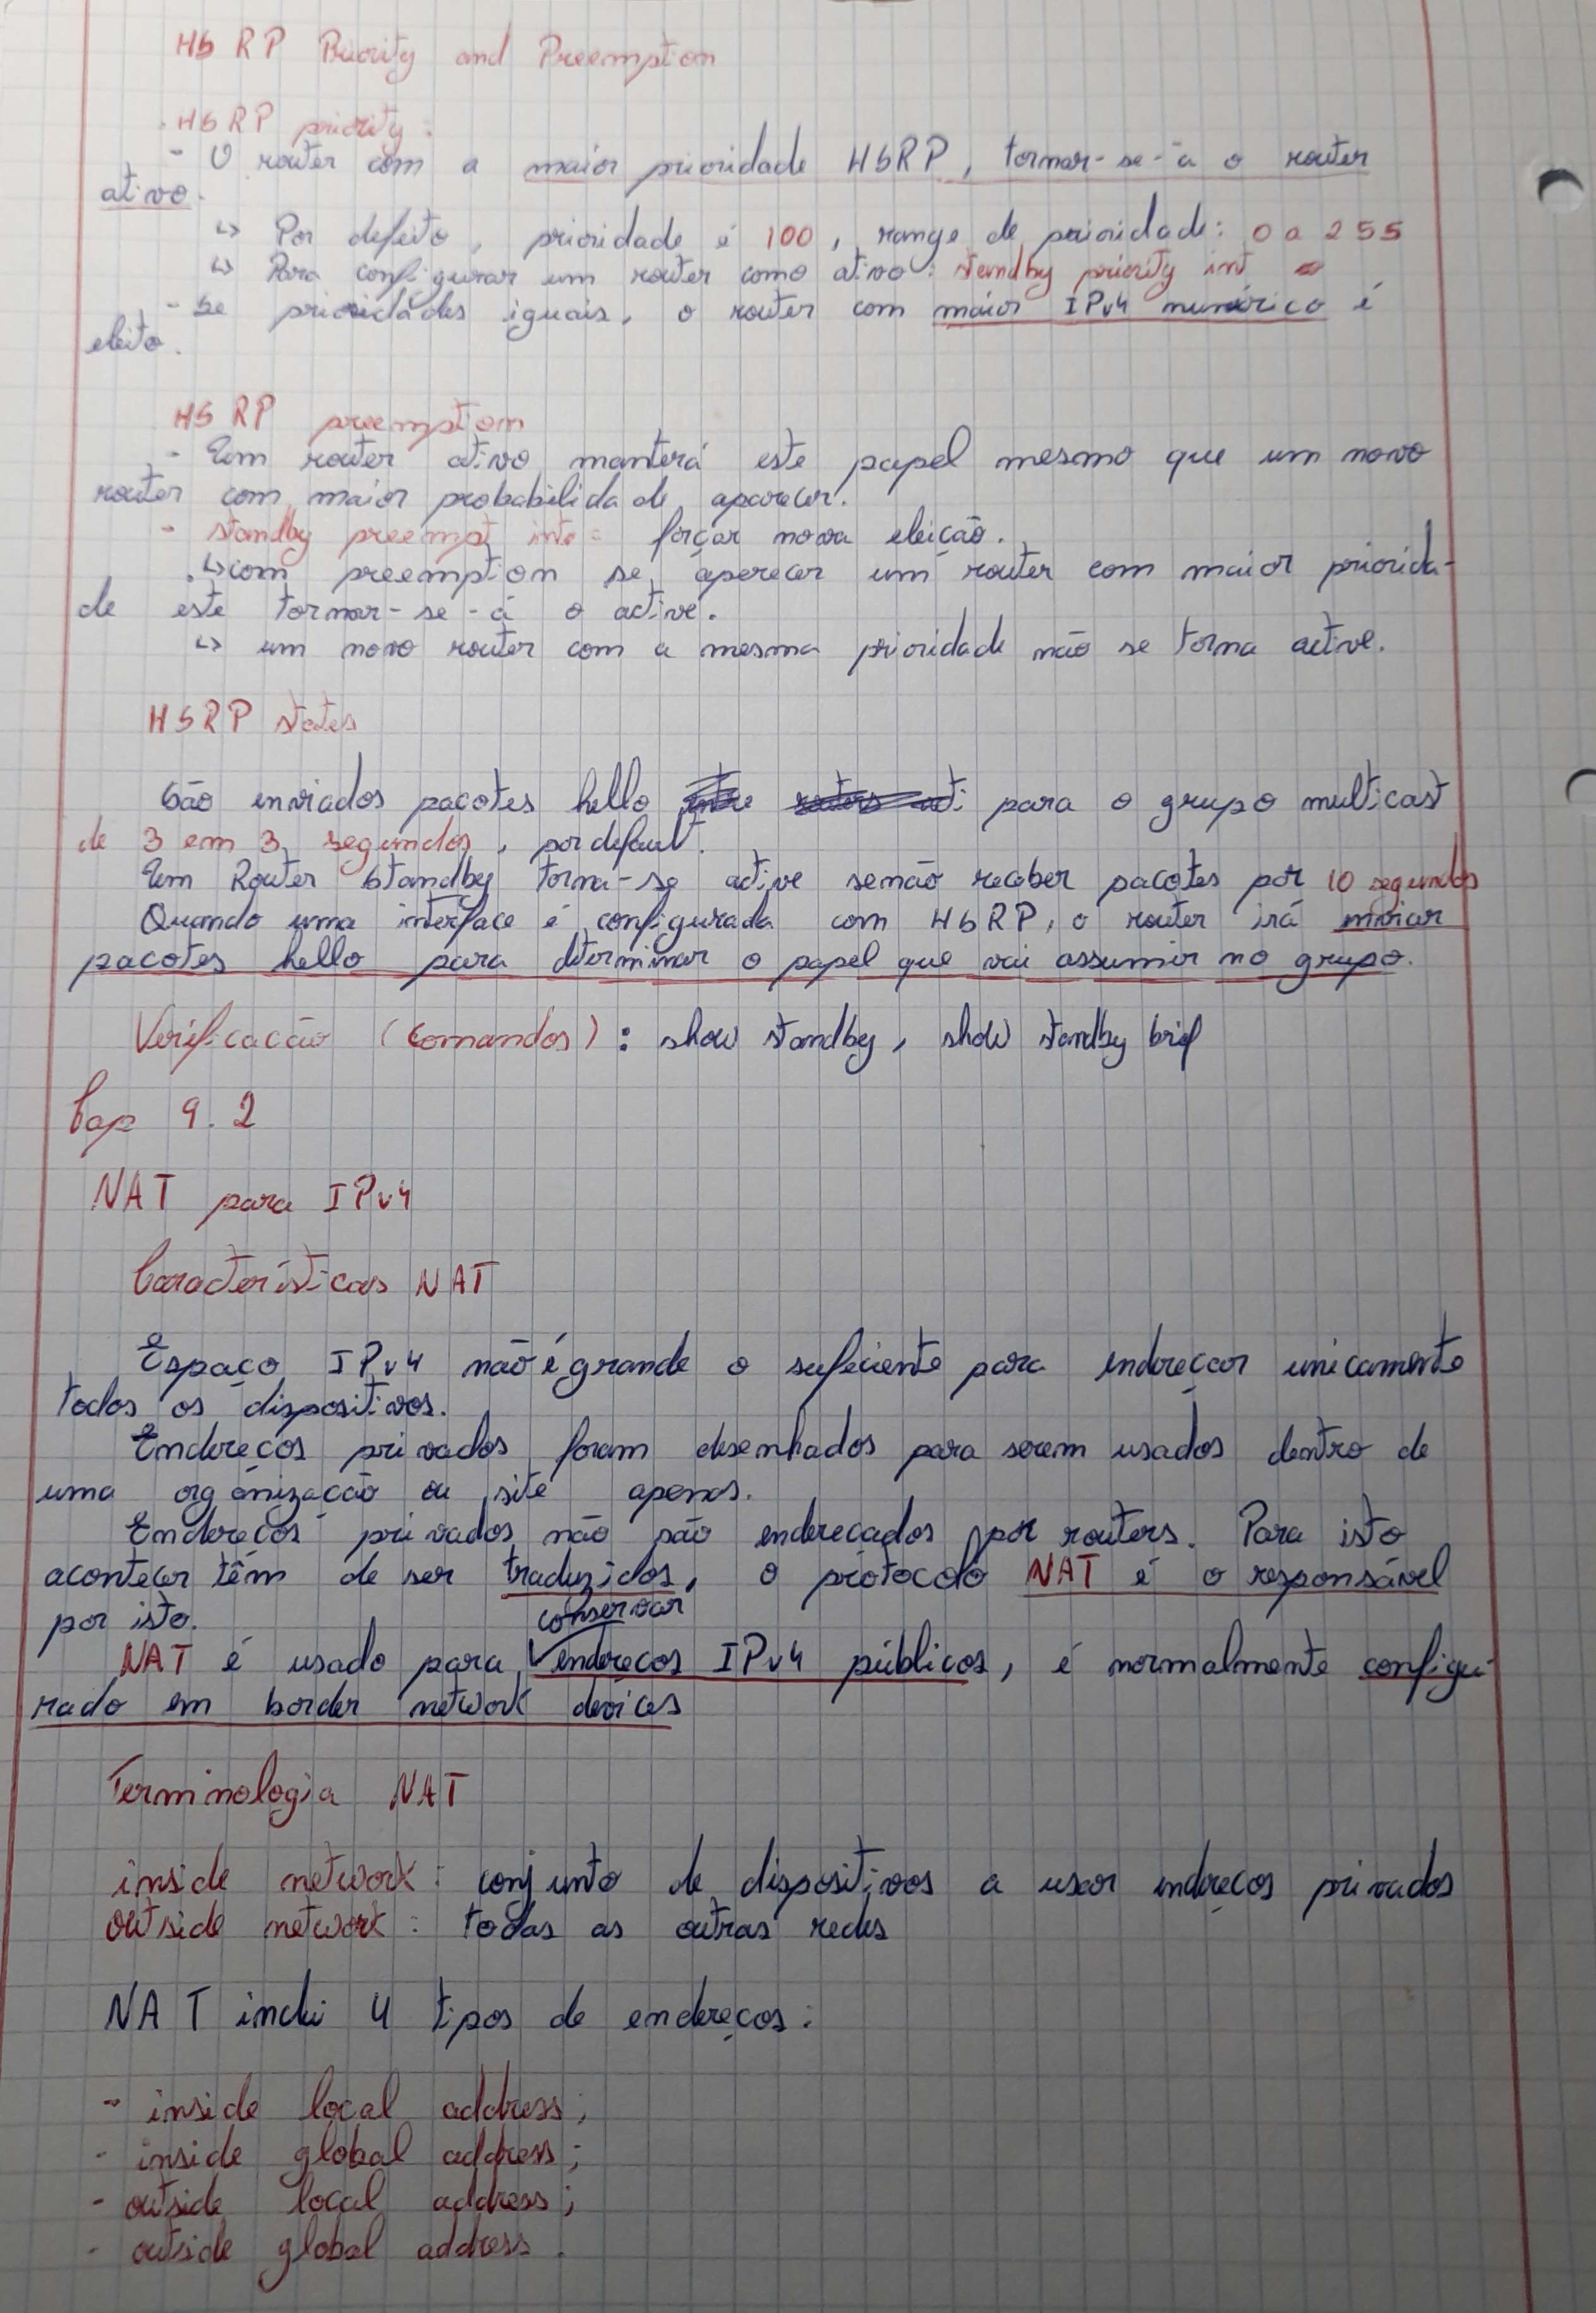 HSRP Priority and Preemption
HSRP priority:
- O router com a maior prioridade HSRP, tornar-se-á o router
ativo.
↳ Por defeito, prioridade é 100, range de prioridade: 0 a 255
↳ Para configurar um router como ativo: standby priority int
- Se prioridades iguais, o router com maior IPv4 numérico é
eleito.
HSRP preemption
- Um router ativo manterá este papel mesmo que um novo
router com maior probabilidade aparecer.
- standby preempt inte = forçar nova eleição.
↳ com preemption se aparecer um router com maior priorida-
de este tornar-se-á o active.
↳ um novo router com a mesma prioridade não se torna active.
HSRP states
São enviados pacotes hello para o grupo multicast
de 3 em 3 segundos, por default.
Um Router Standby torna-se active se não receber pacotes por 10 segundos
Quando uma interface é configurada com HSRP, o router irá enviar
pacotes hello para determinar o papel que vai assumir no grupo.
Verificação (Comandos): show standby, show standby brief
Cap 9.2
NAT para IPv4
Características NAT
Espaço IPv4 não é grande o suficiente para endereçar unicamente
todos os dispositivos.
Endereços privados foram desenhados para serem usados dentro de
uma organização ou site apenas.
Endereços privados não são endereçados por routers. Para isto
acontecer têm de ser traduzidos, o protocolo NAT é o responsável
por isto.
NAT é usado para conservar endereços IPv4 públicos, é normalmente configu-
rado em border network devices
Terminologia NAT
inside network: conjunto de dispositivos a usar endereços privados
outside network: todas as outras redes
NAT inclui 4 tipos de endereços:
- inside local address;
- inside global address;
- outside local address;
- outside global address.